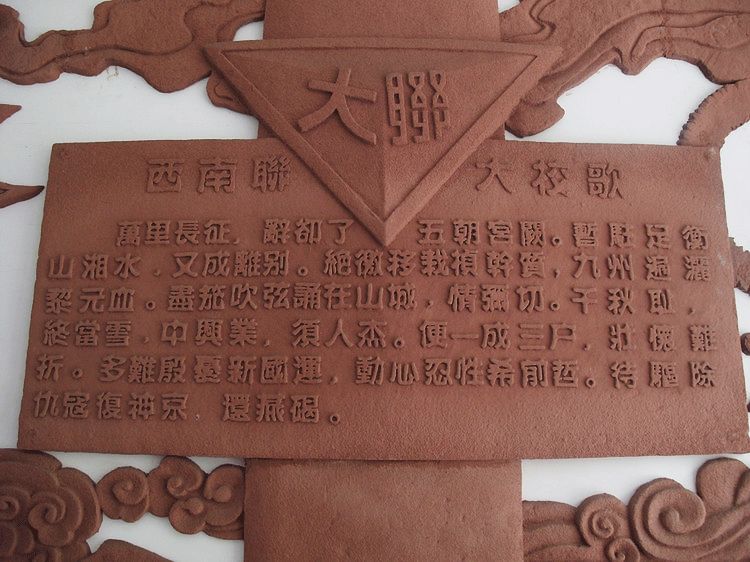 大聯
西南聯 大校歌
萬里長征，辭卻了 五朝宮闕。暫駐足衡
山湘水，又成離別。絕徼移栽楨幹質，九州遍灑
黎元血。盡笳吹弦誦在山城，情彌切。千秋恥，
終當雪，中興業，須人杰。便一成三户，壯懷難
折。多難殷憂新國運，動心忍性希前哲。待驅除
仇寇復神京 還燕碣。